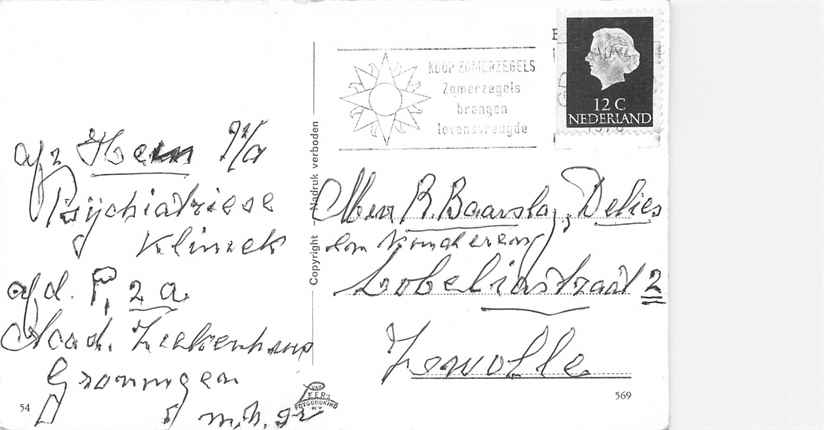 afz Hoem P/a
Psychiatriese
Kliniek
afd. P, 2 a
Acad. Ziekenhuis
Groningen
m.h.gr
54
Copyright - Nadruk verboden
VAN
LEER'S
FOTODRUKIND.
N.V.
KOOP ZOMERZEGELS
Zomerzegels
brengen
levensvreugde
12 C
NEDERLAND
1970
Mevr R. Baarslag, Delies
en kinderen
Lobeliastraat 2
Zwolle
569